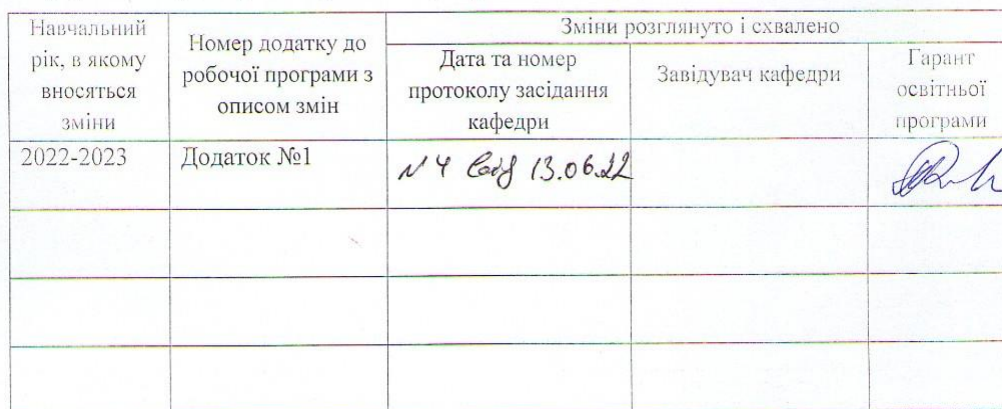 Навчальний рік, в якому вносяться зміни
Номер додатку до робочої програми з описом змін
Зміни розглянуто і схвалено
Дата та номер протоколу засідання кафедри
Завідувач кафедри
Гарант освітньої програми
2022-2023
Додаток №1
N 4 13.06.22